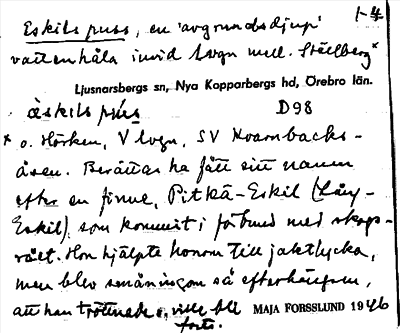 1-4
Eskils puss, en 'avgrundsdjup'
vattenhåla invid lvgn mell. Ställberg*
Ljusnarsbergs sn, Nya Kopparbergs hd, Örebro län.
äskils pús D98
* o. Hörken, V lvgn, SV Kvarnbacks-
åsen. Berättas ha fått sitt namn
efter en finne, Pitkä-Eskil (Lång-
Eskil) som kommit i förbund med skogs-
rået. Hon hjälpte honom till jaktlycka,
men blev småningom så efterhängsen,
att han tröttnade o. ville bli
MAJA FORSSLUND 1946
forts.